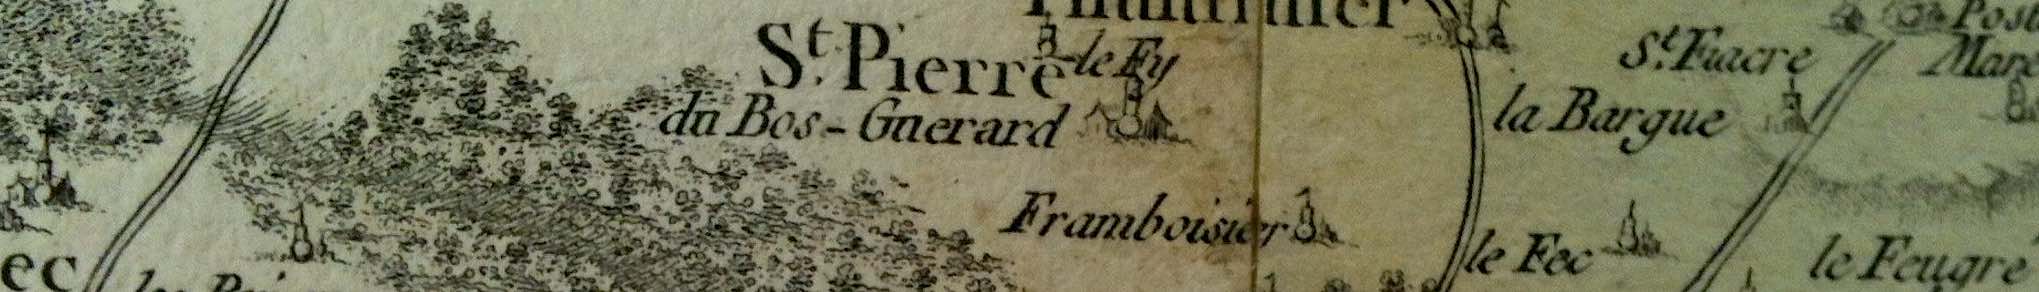 St. Pierre
le Fy
du Bos-Guerard
St. Fiacre
la Bargue
Framboisier
le Fec
le Feugré